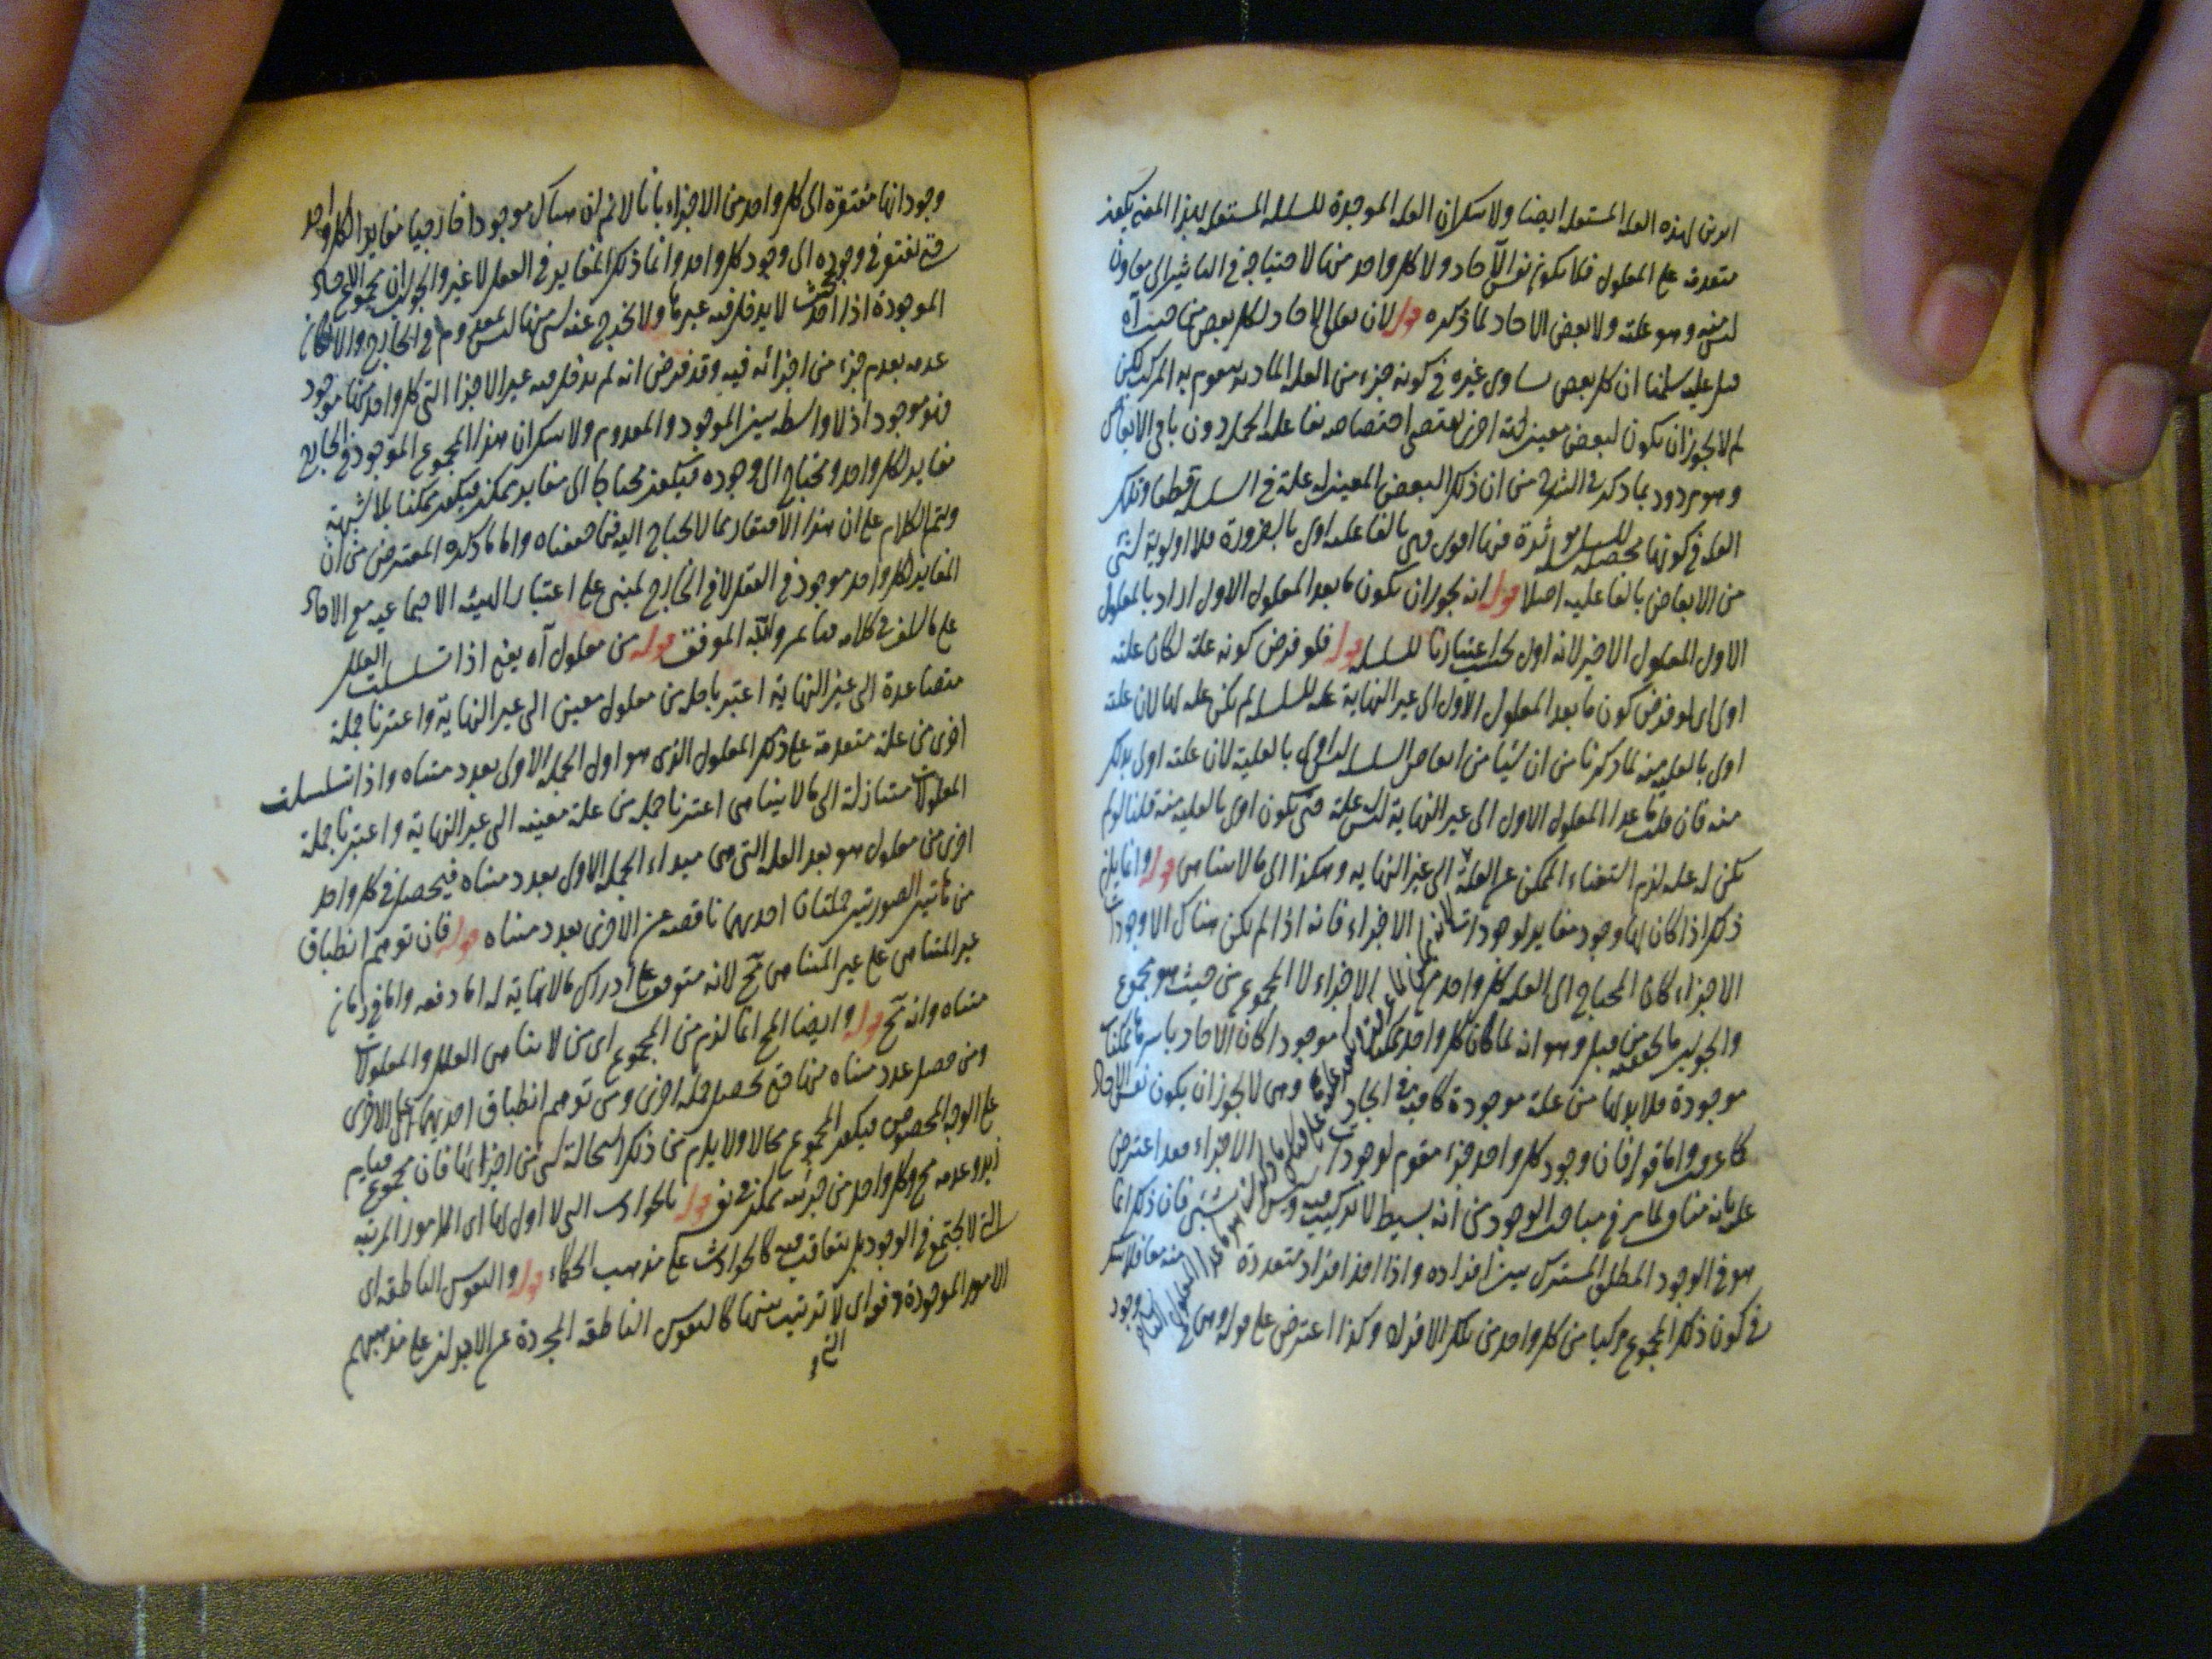 اخرى لهذه العلة المستقلة ايضا ولا شك ان العلة الموجدة للسلسلة المستقلة بهذا المعنى يكون
متقدمة على المعلول فلا يكون نفس الآحاد ولا كل واحد منها لاحتياجه في التاثير الى معاون
ليس منه وهو علته ولا بعض الاحاد لما ذكره قوله لان تعلق الاحاد لكل بعض من حيث آه
قيل عليه سلمنا ان كل بعض يساوى غيره في كونه جزء من العلة المادية يتقوم به المركب لكن
لم لا يجوز ان يكون لبعض معين جهة اخرى يقتضى اختصاصه بفاعلية الجملة دون باقى الابعاض
وهو مردود بما ذكر في الشرح من ان ذلك البعض المعين له علة في السلسلة قطعا وتلك
العلة في كونها محصلة للسلسلة مؤثرة فيها اقوى فهي بالفاعلية اولى بالضرورة فلا اولوية لشئ
من الابعاض بالفاعلية اصلا قوله انه يجوز ان يكون ما بعد المعلول الاول اراد بالمعلول
الاول المعلول الاخير لانه اول بحسب اعتبارنا للسلسلة قوله فلو فرض كونه علة لكان علته
اولى اى لو فرض كون ما بعد المعلول الاول الى غير النهاية علة للسلسلة لم يكن علة لها لان علته
اولى بالعلية منه لما ذكرنا من ان شيئا من ابعاض السلسلة ليس اولى بالعلية لان علته اولى بذلك
منه فان قلت ما عدا المعلول الاول الى غير النهاية ليس له علة حتى يكون اولى بالعلية منه قلنا لو لم
يكن له علة لزم استغناء الممكن عن العلة الى غير النهاية وهكذا الى ما لا يتناهى قوله وانما يلزم
ذلك اذا كان لها وجود مغاير لوجودات الاجزاء فانه اذا لم يكن هناك الا وجودات
الاجزاء كان المحتاج الى العلة كل واحد من الاجزاء لا المجموع من حيث هو مجموع
والجواب ما تحققته من قبل وهو انه لما كان كل واحد ممكنا موجودا كان الاحاد باسرها ممكنات
موجودة فلا بد لها من علة موجودة كافية في ايجادها وهى لا يجوز ان يكون نفس الاحاد
كما عرفت واما قوله فان وجود كل واحد جزء مقوم لوجود الاجزاء فقد اعترض
عليه بانه مناف لما مر في مباحث الوجود من انه بسيط لا تركيب فيه وليس بشئ فان ذلك انما
هو في الوجود المطلق المشترك بين افراده واذا اخذ افراد متعددة منه معا فلا شك
في كون ذلك المجموع مركبا من كل واحد من تلك الافراد وكذا اعترض على قوله وهى وجود
وجود انها مفتقرة الى كل واحد من الاجزاء بانا لا نم ان هناك موجودا خارجيا مغايرا لكل واحد
حتى يفتقر في وجوده الى وجود كل واحد وانما ذلك المغاير في العقل لا غير والجواب ان مجموع الاحاد
الموجودة اذا اخذ بحيث لا يدخل فيه غيرها ولا يخرج عنه شئ منها ليس بمعدوم في الخارج والا لكان
عدمه بعدم جزء من اجزائه فيه وقد فرض انه لم يدخل فيه غير الاجزاء التى كل واحد منها موجود
فهو موجود اذ لا واسطة بين الموجود والمعدوم ولا شك ان هذا المجموع الموجود في الخارج
مغاير لكل واحد ومحتاج الى وجوده فيكون محتاجا الى مغاير ممكن فيكون ممكنا بلا شبهة
ويتم الكلام على ان هذا الافتقار مما لا يحتاج اليه فيما حققناه واما ما ذكره المعترض من ان
المغاير لكل واحد موجود في العقل لا في الخارج فمبنى على اعتبار الهيئة الاجتماعية مع الاحاد
على ما سلف في كلامه فيما مر والله الموفق قوله من معلول آه يعنى اذا تسلسلت العلل
متصاعدة الى غير النهاية اعتبرنا جملة من معلول معين الى غير النهاية واعتبرنا جملة
اخرى من علة متقدمة على ذلك المعلول الذى هو اول الجملة الاولى بعدد متناه واذا تسلسلت
المعلولات متنازلة الى ما لا يتناهى اعتبرنا جملة من علة معينة الى غير النهاية واعتبرنا جملة
اخرى من معلول هو بعد العلة التى هى مبداء الجملة الاولى بعدد متناه فيحصل في كل واحد
من هاتين الصورتين جملتان احديهما ناقصة عن الاخرى بعدد متناه قوله فان توهم انطباق
غير المتناهى على غير المتناهى مح لانه متوقف على ادراك ما لا نهاية له اما دفعه واما في زمان
متناه وانه مح قوله وايضا المح انما لزم من المجموع اى من لا تناهى العلل والمعلولات
ومن فصل عدد متناه منها حتى تحصل جملة اخرى ومن توهم انطباق احديهما على الاخرى
على الوجه المخصوص فيكون المجموع محالا ولا يلزم من ذلك استحالة شئ من اجزائها فان مجموع قيام
زيد وعدمه مح وكل واحد من جزئيه ممكن في نفسه قوله كالحوادث التى لا اول لها اى الامور المرتبة
التى لا يجتمع في الوجود بل يتعاقب فيه كالحوادث على مذهب الحكماء قوله والنفوس الناطقة اى
الامور الموجودة دفعة اى لا ترتيب بينها كالنفوس الناطقة المجردة عن الابدان على مذهبهم